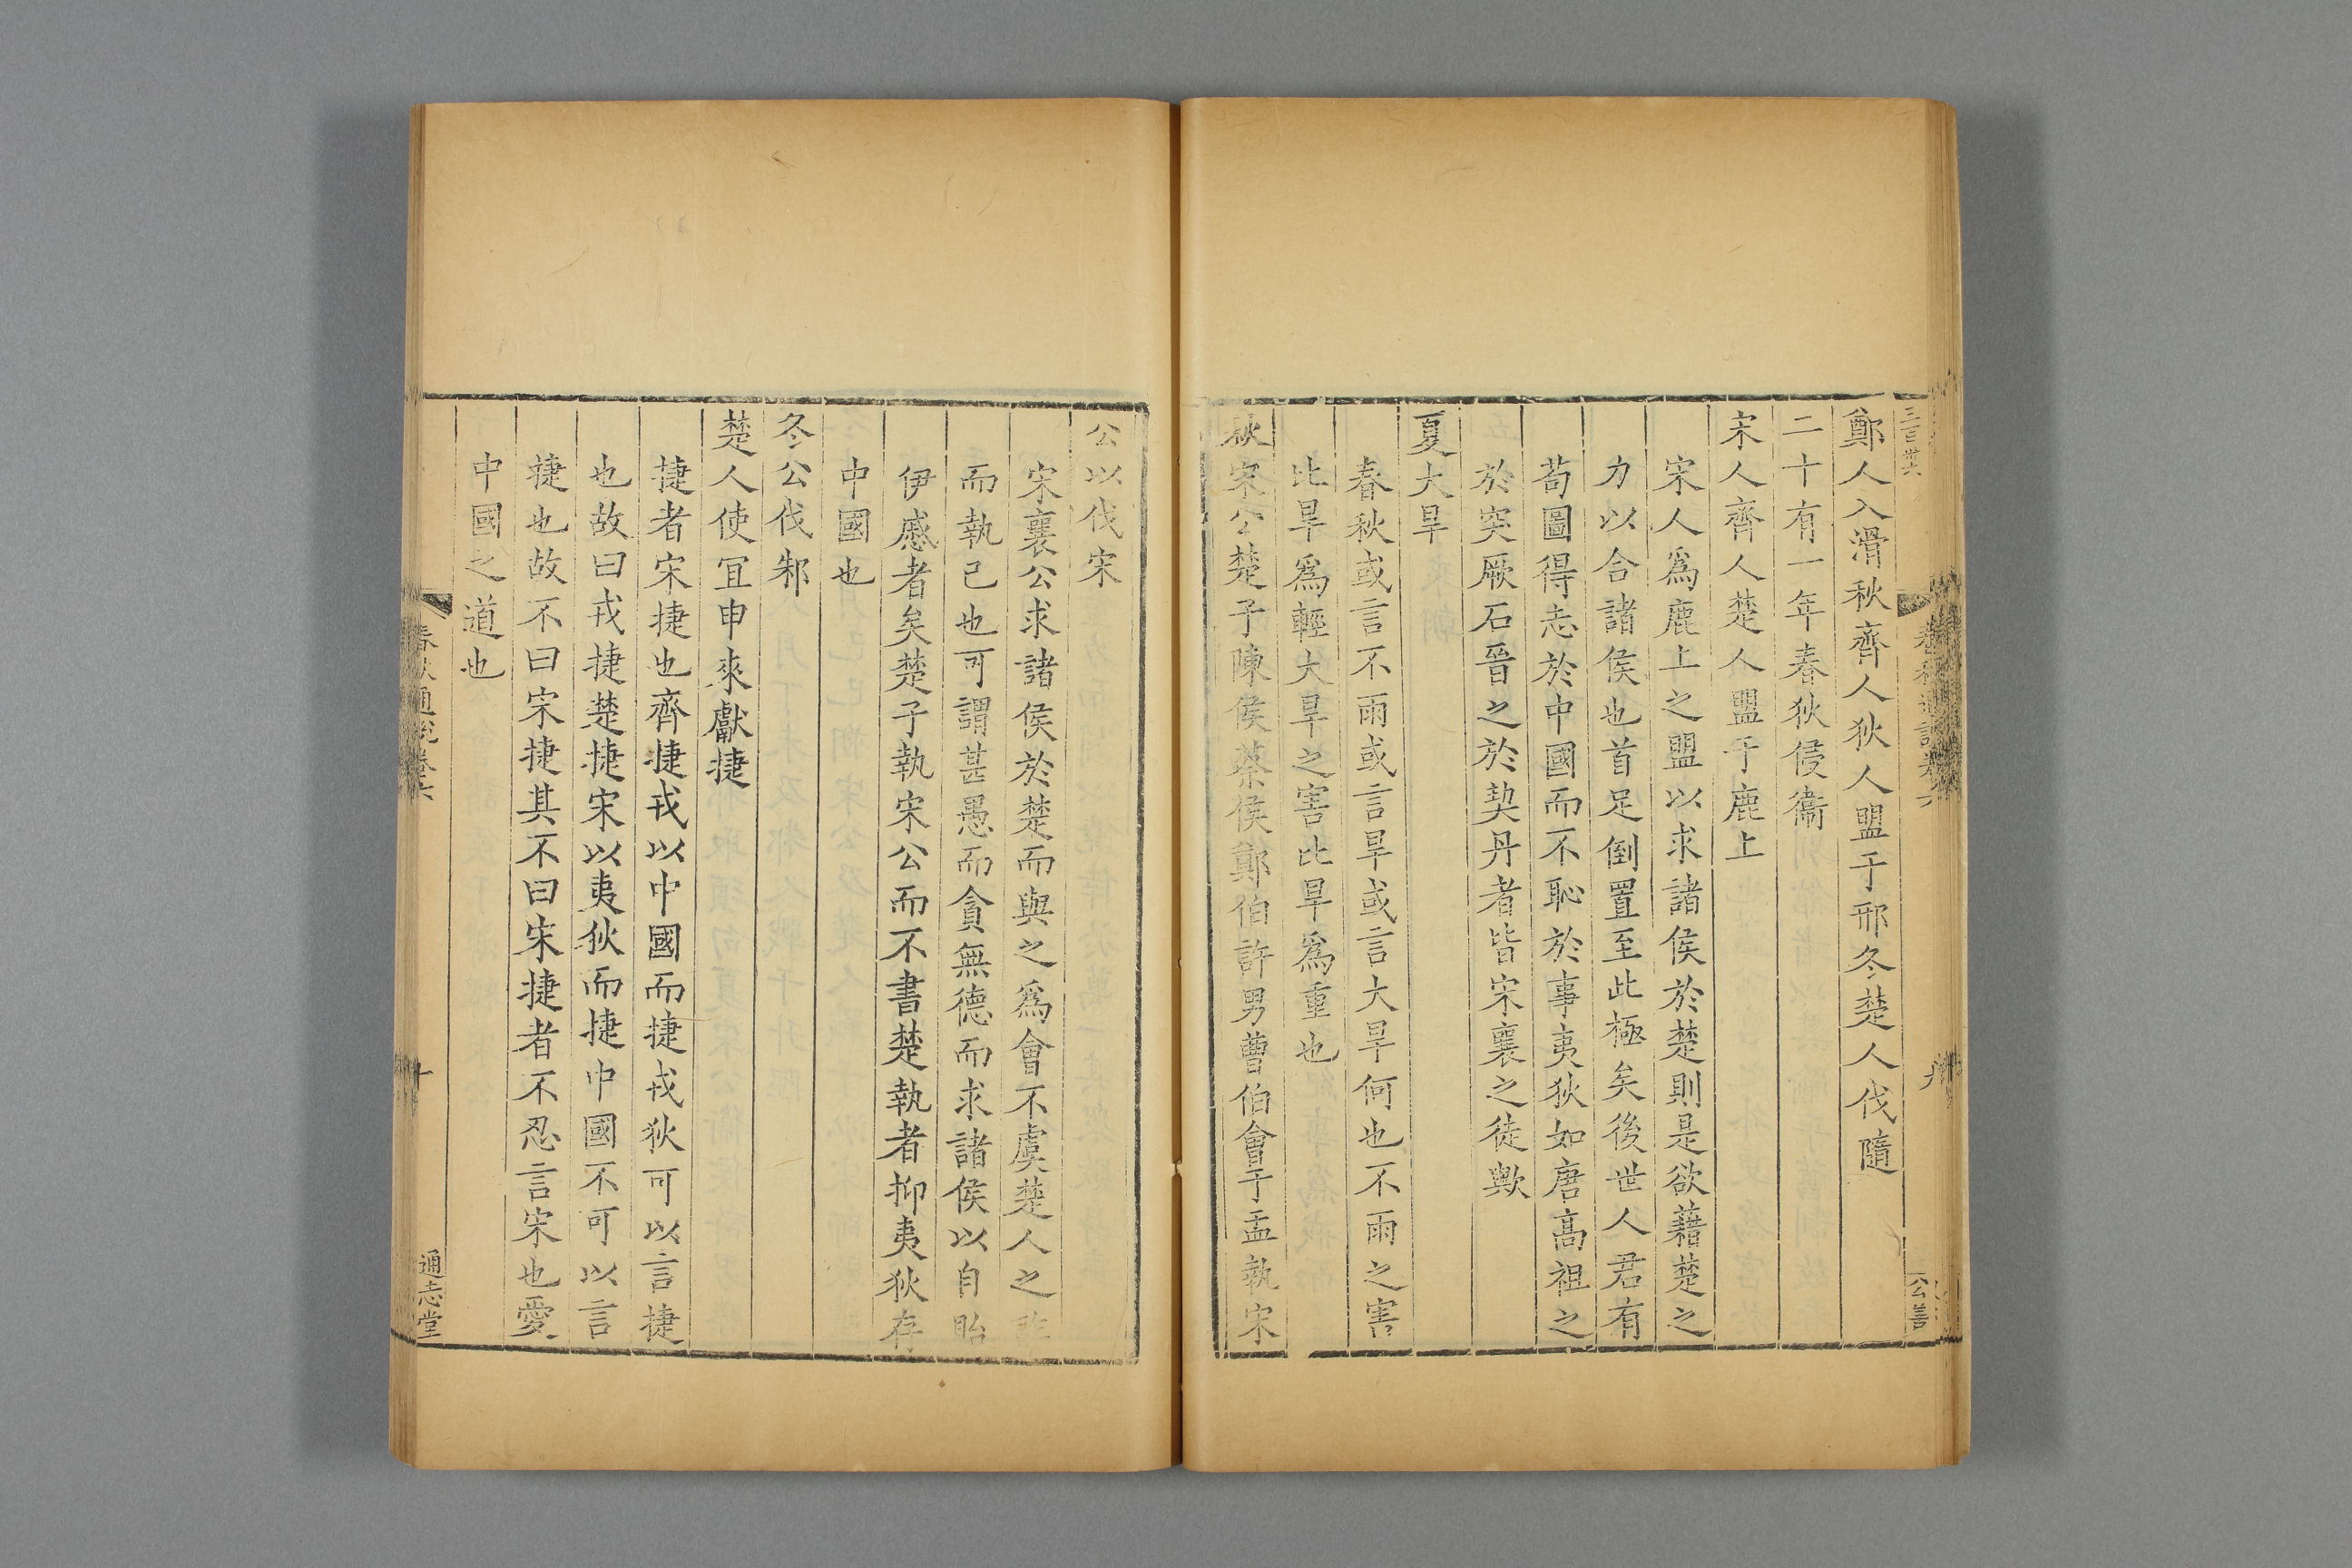 三百卅六
鄭人入滑秋齊人狄人盟于邢冬楚人伐隨
二十有一年春狄侵衞
宋人齊人楚人盟于鹿上
宋人爲鹿上之盟以求諸侯於楚則是欲藉楚之
力以合諸侯也首足倒置至此極矣後世人君有
苟圖得志於中國而不恥於事夷狄如唐高祖之
於突厥石晉之於契丹者皆宋襄之徒歟
夏大旱
春秋或言不雨或言旱或言大旱何也不雨之害
比旱爲輕大旱之害比旱爲重也
秋宋公楚子陳侯蔡侯鄭伯許男曹伯會于盂執宋
春秋通說卷六
九
公善
公以伐宋
宋襄公求諸侯於楚而與之爲會不虞楚人之詐
而執己也可謂甚愚而貪無德而求諸侯以自貽
伊慼者矣楚子執宋公而不書楚執者抑夷狄存
中國也
冬公伐邾
楚人使宜申來獻捷
捷者宋捷也齊捷戎以中國而捷戎狄可以言捷
也故曰戎捷楚捷宋以夷狄而捷中國不可以言
捷也故不曰宋捷其不曰宋捷者不忍言宋也愛
中國之道也
春秋通說卷六
十
通志堂